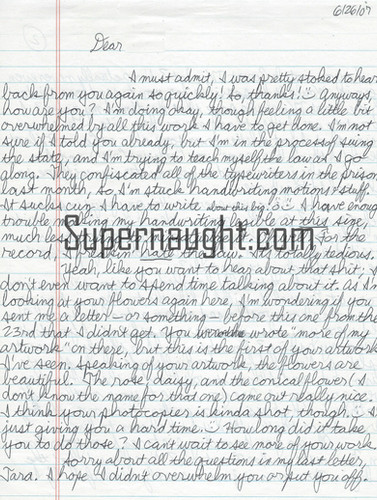 6/26/07
Dear
I must admit, I was pretty stoked to hear
back from you again so quickly! So, thanks! Anyways,
how are you? I'm doing okay, though feeling a little bit
overwhelmed by all this work I have to get done. I'm not
sure if I told you already, but I'm in the process of suing
the state, and I'm trying to teach myself the law as I go
along. They confiscated all of the typewriters in the prison
last month, so, I'm stuck handwriting motions & stuff.
It sucks cuz I have to write this big. I have enough
trouble making my handwriting legible at this size,
much less for the
Supernaught.com
record, I freakin' hate the law. It's totally tedious.
Yeah, like you want to hear about that shit; I
don't even want to spend time talking about it. As I'm
looking at your flowers again here, I'm wondering if you
sent me a letter - or something - before this one from the
23rd that I didn't get. You wrote "more of my
artwork" on there, but this is the first of your artwork
I've seen. Speaking of your artwork, the flowers are
beautiful. The rose, daisy, and the conical flower (I
don't know the name for that one) came out really nice.
I think your photocopier is kinda shot, though. I'm
just giving you a hard time. How long did it take
you to do those? I can't wait to see more of your work.
Sorry about all the questions in my last letter,
Tara. I hope I didn't overwhelm you or put you off.